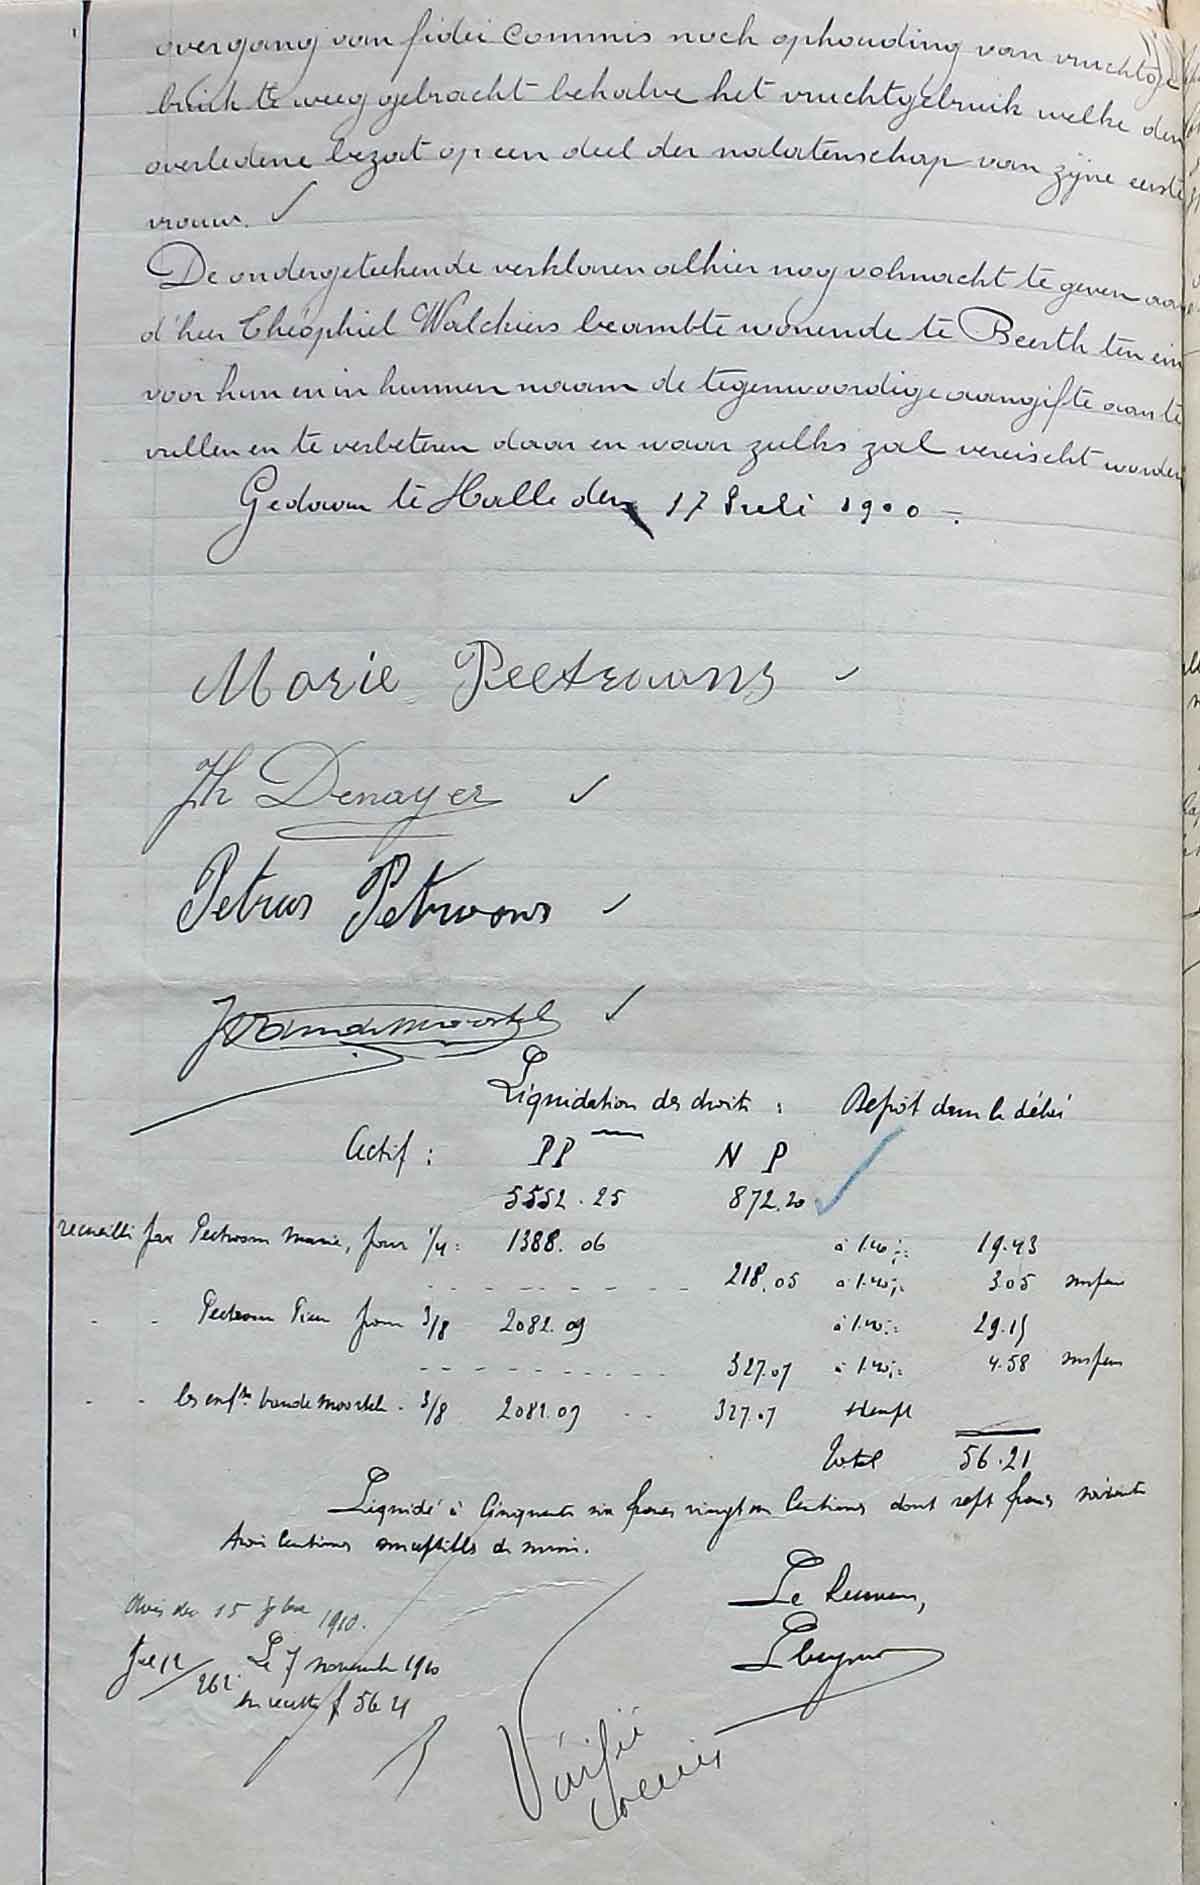 overgang van fidei commis noch ophouding van vruchtge
bruik te weeg gebracht behalve het vruchtgebruik welke den
overledene bezat op een deel der nalatenschap van zijne eerste
vrouw. ✓
De ondergeteekende verklaren alhier nog volmacht te geven aan
d'heer Théophiel Walckiers beambte wonende te Beerth ten ein
voor hun en in hunnen naam de tegenwoordige aangifte aan te
vullen en te verbeteren daar en waar zulks zal vereischt worden
Gedaan te Halle den 17 Juli 1900 -.
Marie Peetroons ✓
Th Denayer ✓
Petrus Petroons ✓
J Vandemoortel ✓
Liquidation des droits : Dépôt dans le délai
Actif : PP N P
5552.25 872.20 ✓
recueilli par Peetroons Marie, pour 1/4 : 1388.06 à 1.40 % 19.43
218.05 à 1.40 % 3.05
" " Peetroons Pierre pour 3/8 2082.09 à 1.40 % 29.15
327.07 à 1.40 % 4.58
" " les enfts Vandemoortele . 3/8 2082.09 .. 327.07 exempt
Total 56.21
Liquidé à Cinquante six francs vingt un Centimes dont sept francs soixante
trois Centimes susceptibles de
Le Receveur,
Avis du 15 7bre 1910.
Le 7 novembre 1910
262
en recette f 56.21
Vérifié